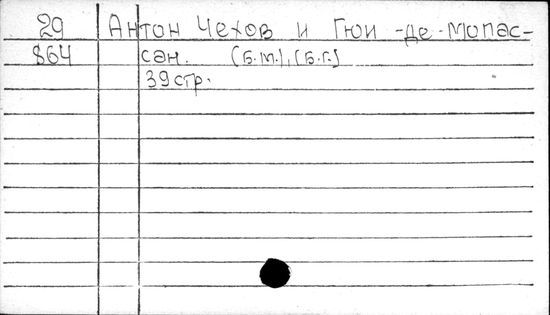 29 Антон Чехов и Гюи -де- Мопас-
864 сан. (б.м.), (б.г.)
39стр.